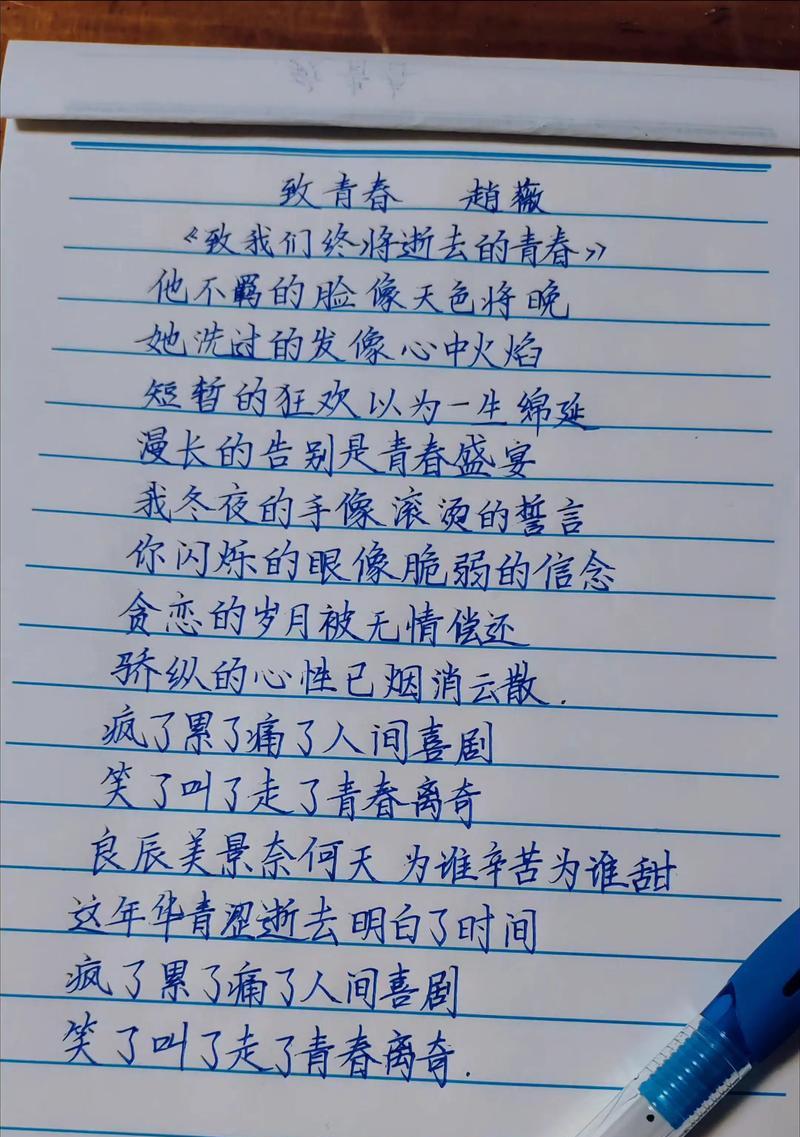 致青春 趙薇
《致我们终将逝去的青春》
他不羁的脸像天色将晚
她洗过的发像心中火焰
短暂的狂欢以为一生绵延
漫长的告别是青春盛宴
我冬夜的手像滚烫的誓言
你闪烁的眼像脆弱的信念
贪恋的岁月被无情偿还
骄纵的心性已烟消云散.
疯了累了痛了人间喜剧
笑了叫了走了青春离奇
良辰美景奈何天 为谁辛苦为谁甜
这年华青涩逝去明白了时间
疯了累了痛了人间喜剧
笑了叫了走了青春离奇.